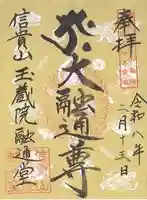 奉拝
令和八年
二月十五日
大融通尊
信貴山玉蔵院融通堂